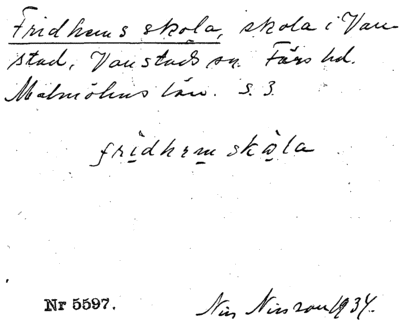 Fridhems skola, skola i Van-
stad, Vanstads sn. Färs hd.
Malmöhus län. s. 3.
frìdhem skòla
Nr 5597.
Nils Nilsson 1934.